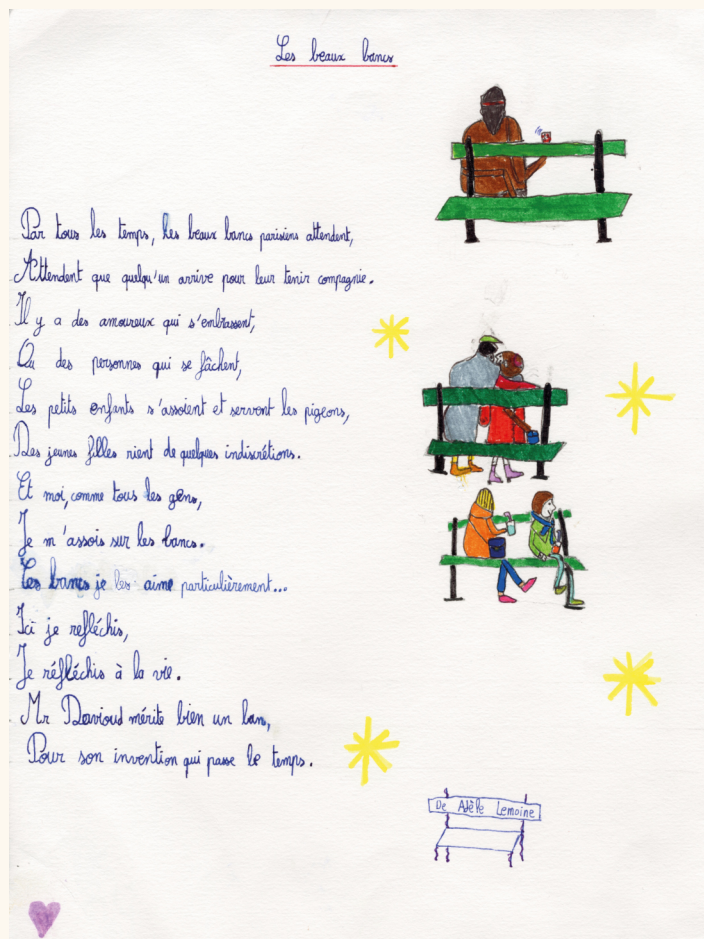 Les beaux bancs
Par tous les temps, les beaux bancs parisiens attendent,
Attendent que quelqu'un arrive pour leur tenir compagnie.
Il y a des amoureux qui s'embrassent,
Ou des personnes qui se fâchent,
Les petits enfants s'assoient et servent les pigeons,
Des jeunes filles rient de quelques indiscrétions.
Et moi, comme tous les gens,
Je m'assois sur les bancs.
Les bancs je les aime particulièrement...
Ici je refléchis,
Je réfléchis à la vie.
Mr Davioud mérite bien un ban,
Pour son invention qui passe le temps.
De Adèle Lemoine